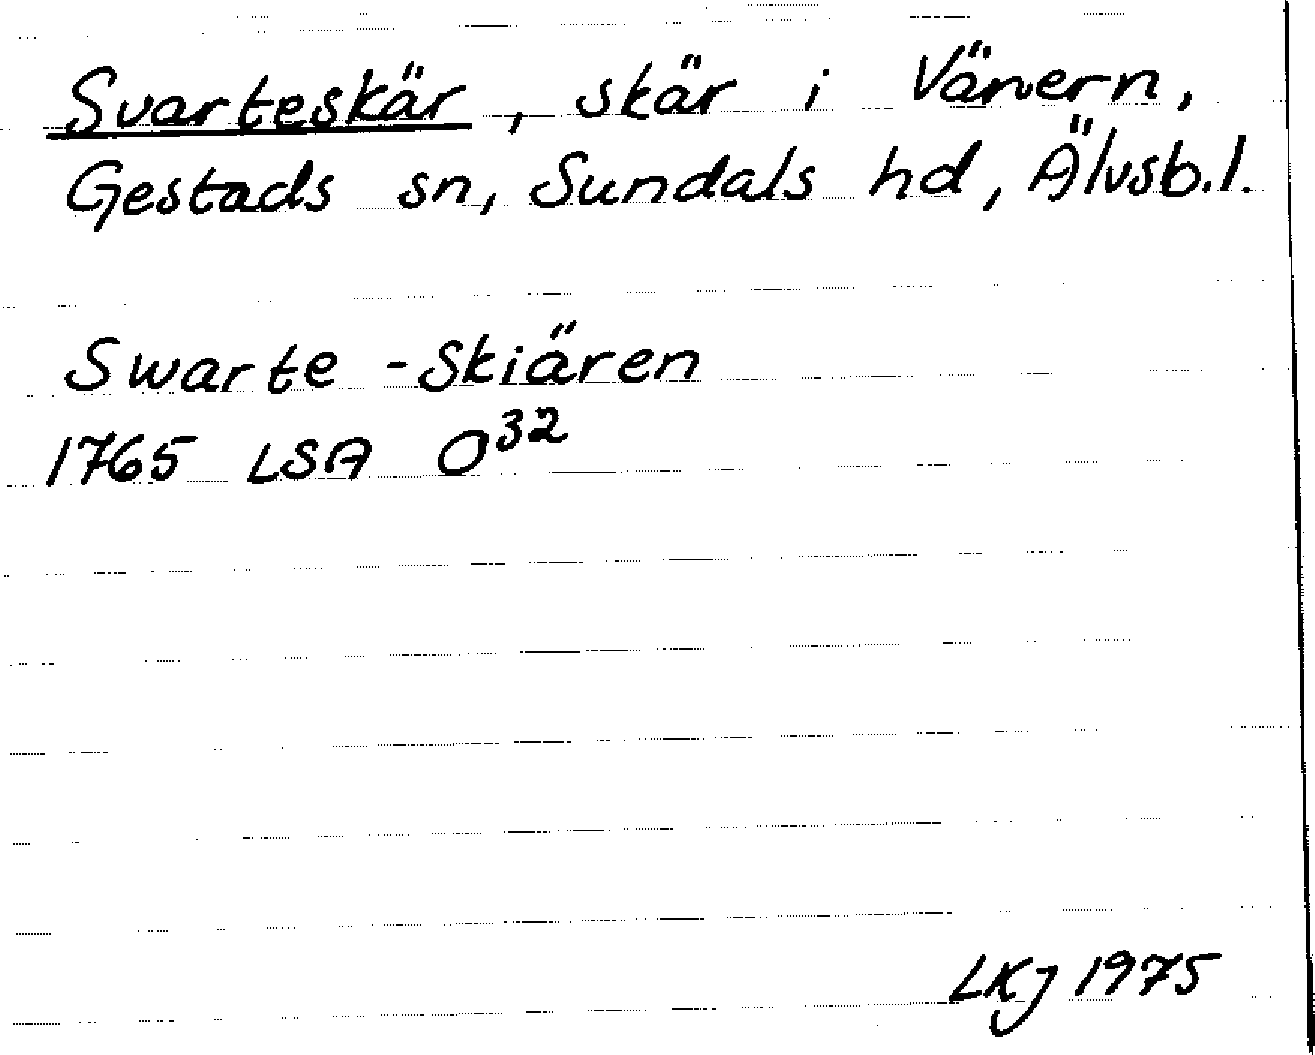 Svarteskär, skär i Vänern,
Gestads sn, Sundals hd, Älvsb.l.
Swarte-Skiären
1765 LSA O³²
LKJ 1975